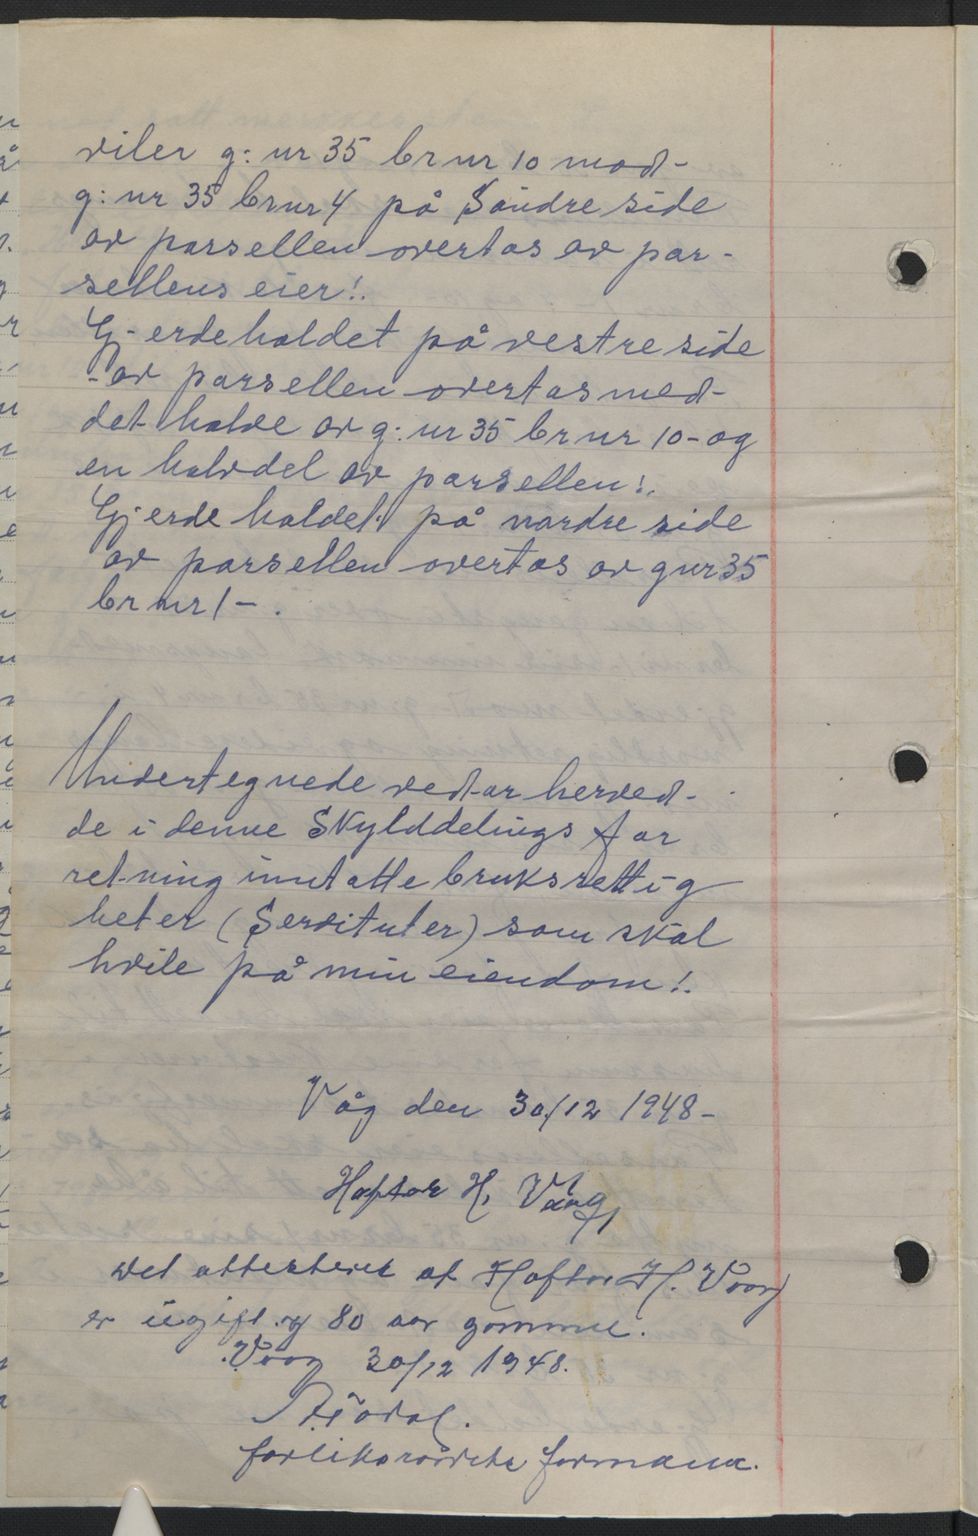 viler g: nr 35 br nr 10 mod-
g: nr 35 brnr 4 på Søndre side
av parsellen overtas av par-
sellens eier!.
Gj-erdeholdet på vestre side
-av parsellen overtas med-
det halve av g: nr 35 br nr 10-og
en halvdel av parsellen!.
Gjerde holdet på nordre side
av parsellen overtas av gnr 35
br nr 1-.
Undertegnede vedtar herved-
de i denne Skylddelings for
retning inntatte bruksrettig
heter (Servituter) som skal
hvile på min eiendom!.
Våg den 30/12 1948-
Haftor H. Våg
Det attesteres at Haftor H. Vaag
er ugift og 80 aar gammel.
Vaag 30/12 1948.
forliksraadets formann.